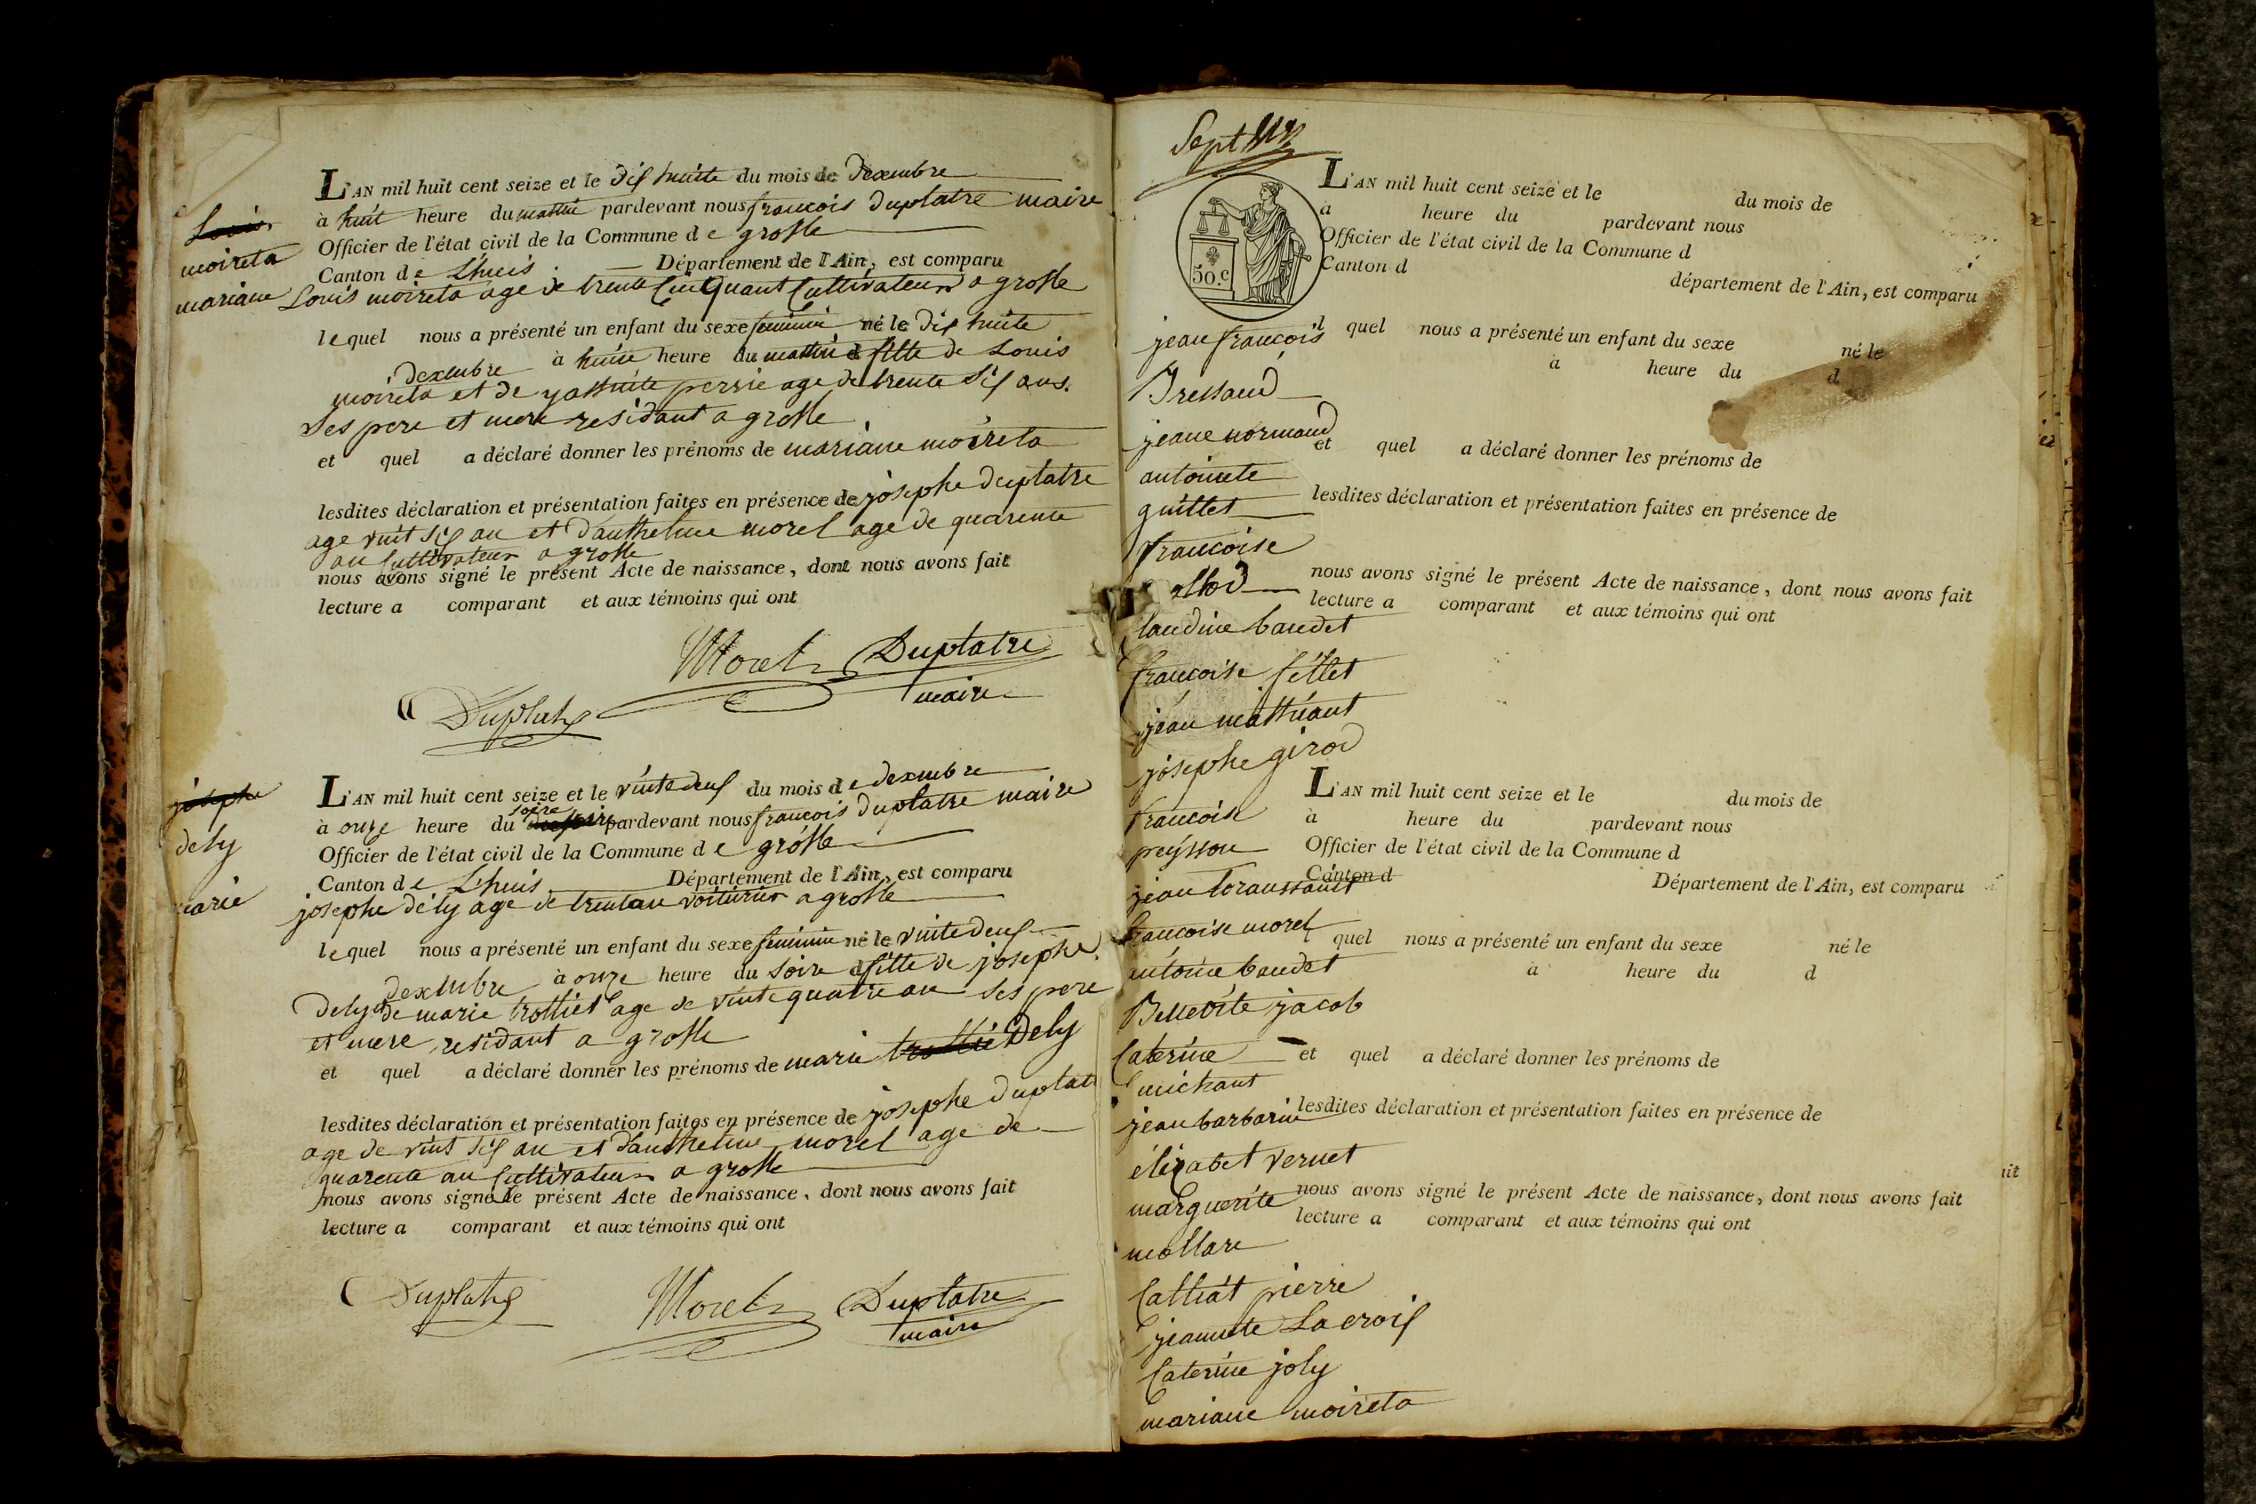 L'AN mil huit cent seize et le dix huite du mois de dexembre
à huit heure du mattin pardevant nous francois duplatre maire
Officier de l'état civil de la Commune de groslle
Canton de L'huis Département de l'Ain, est comparu
Louis moireta age de trente cinq ant Cultivateur a groslle
lequel nous a présenté un enfant du sexe feminin né le dix huite
dexembre à huite heure du mattin d fille de Louis
moireta et de perrie age de trente six ans.
Ses pere et mere residant a groslle
et quel a déclaré donner les prénoms de mariane moireta
lesdites déclaration et présentation faites en présence de josephe duplatre
age vint six an et d'anthelme morel age de quarente
an Cultivateur a groslle
nous avons signé le présent Acte de naissance, dont nous avons fait
lecture a comparant et aux témoins qui ont
Morel Duplatre
maire
Duplatre
Louis
moireta
mariane
josephe
dely
marie
L'AN mil huit cent seize et le vinte deux du mois de dexembre
à onze heure du soire pardevant nous francois duplatre maire
Officier de l'état civil de la Commune de groslle
Canton de L'huis Département de l'Ain, est comparu
josephe dely age de trent an voiturier a groslle
lequel nous a présenté un enfant du sexe feminin né le vinte deux
dexembre à onze heure du soire d fille de josephe
Dely et de marie trolliet age de vinte quatre an ses pere
et mere residant a groslle
et quel a déclaré donner les prénoms de marie trollié Dely
lesdites déclaration et présentation faites en présence de josephe duplatre
age de vint six an et d'anthelme morel age de
quarente an Cultivateur a groslle
nous avons signé le présent Acte de naissance, dont nous avons fait
lecture a comparant et aux témoins qui ont
Duplatre Morel Duplatre
maire
Sept
50.c
L'AN mil huit cent seize et le du mois de
à heure du pardevant nous
Officier de l'état civil de la Commune d
Canton d département de l'Ain, est comparu
l quel nous a présenté un enfant du sexe né le
à heure du d
et quel a déclaré donner les prénoms de
lesdites déclaration et présentation faites en présence de
nous avons signé le présent Acte de naissance, dont nous avons fait
lecture a comparant et aux témoins qui ont
jean francois
Bressand
jeane normand
antoinete
guillet
francoise
allod
laudine baudet
francoise fillet
jean
josephe girod
francoise
peysson
jean
francoise morel
antoine baudet
jacob
Caterine
michaut
jean barbarin
élizabet vernet
marguerite
mollare
Calliat pierre
jeanete Lacroix
Caterine joly
mariane moireta
L'AN mil huit cent seize et le du mois de
à heure du pardevant nous
Officier de l'état civil de la Commune d
Canton d Département de l'Ain, est comparu
quel nous a présenté un enfant du sexe né le
à heure du d
et quel a déclaré donner les prénoms de
lesdites déclaration et présentation faites en présence de
nous avons signé le présent Acte de naissance, dont nous avons fait
lecture a comparant et aux témoins qui ont